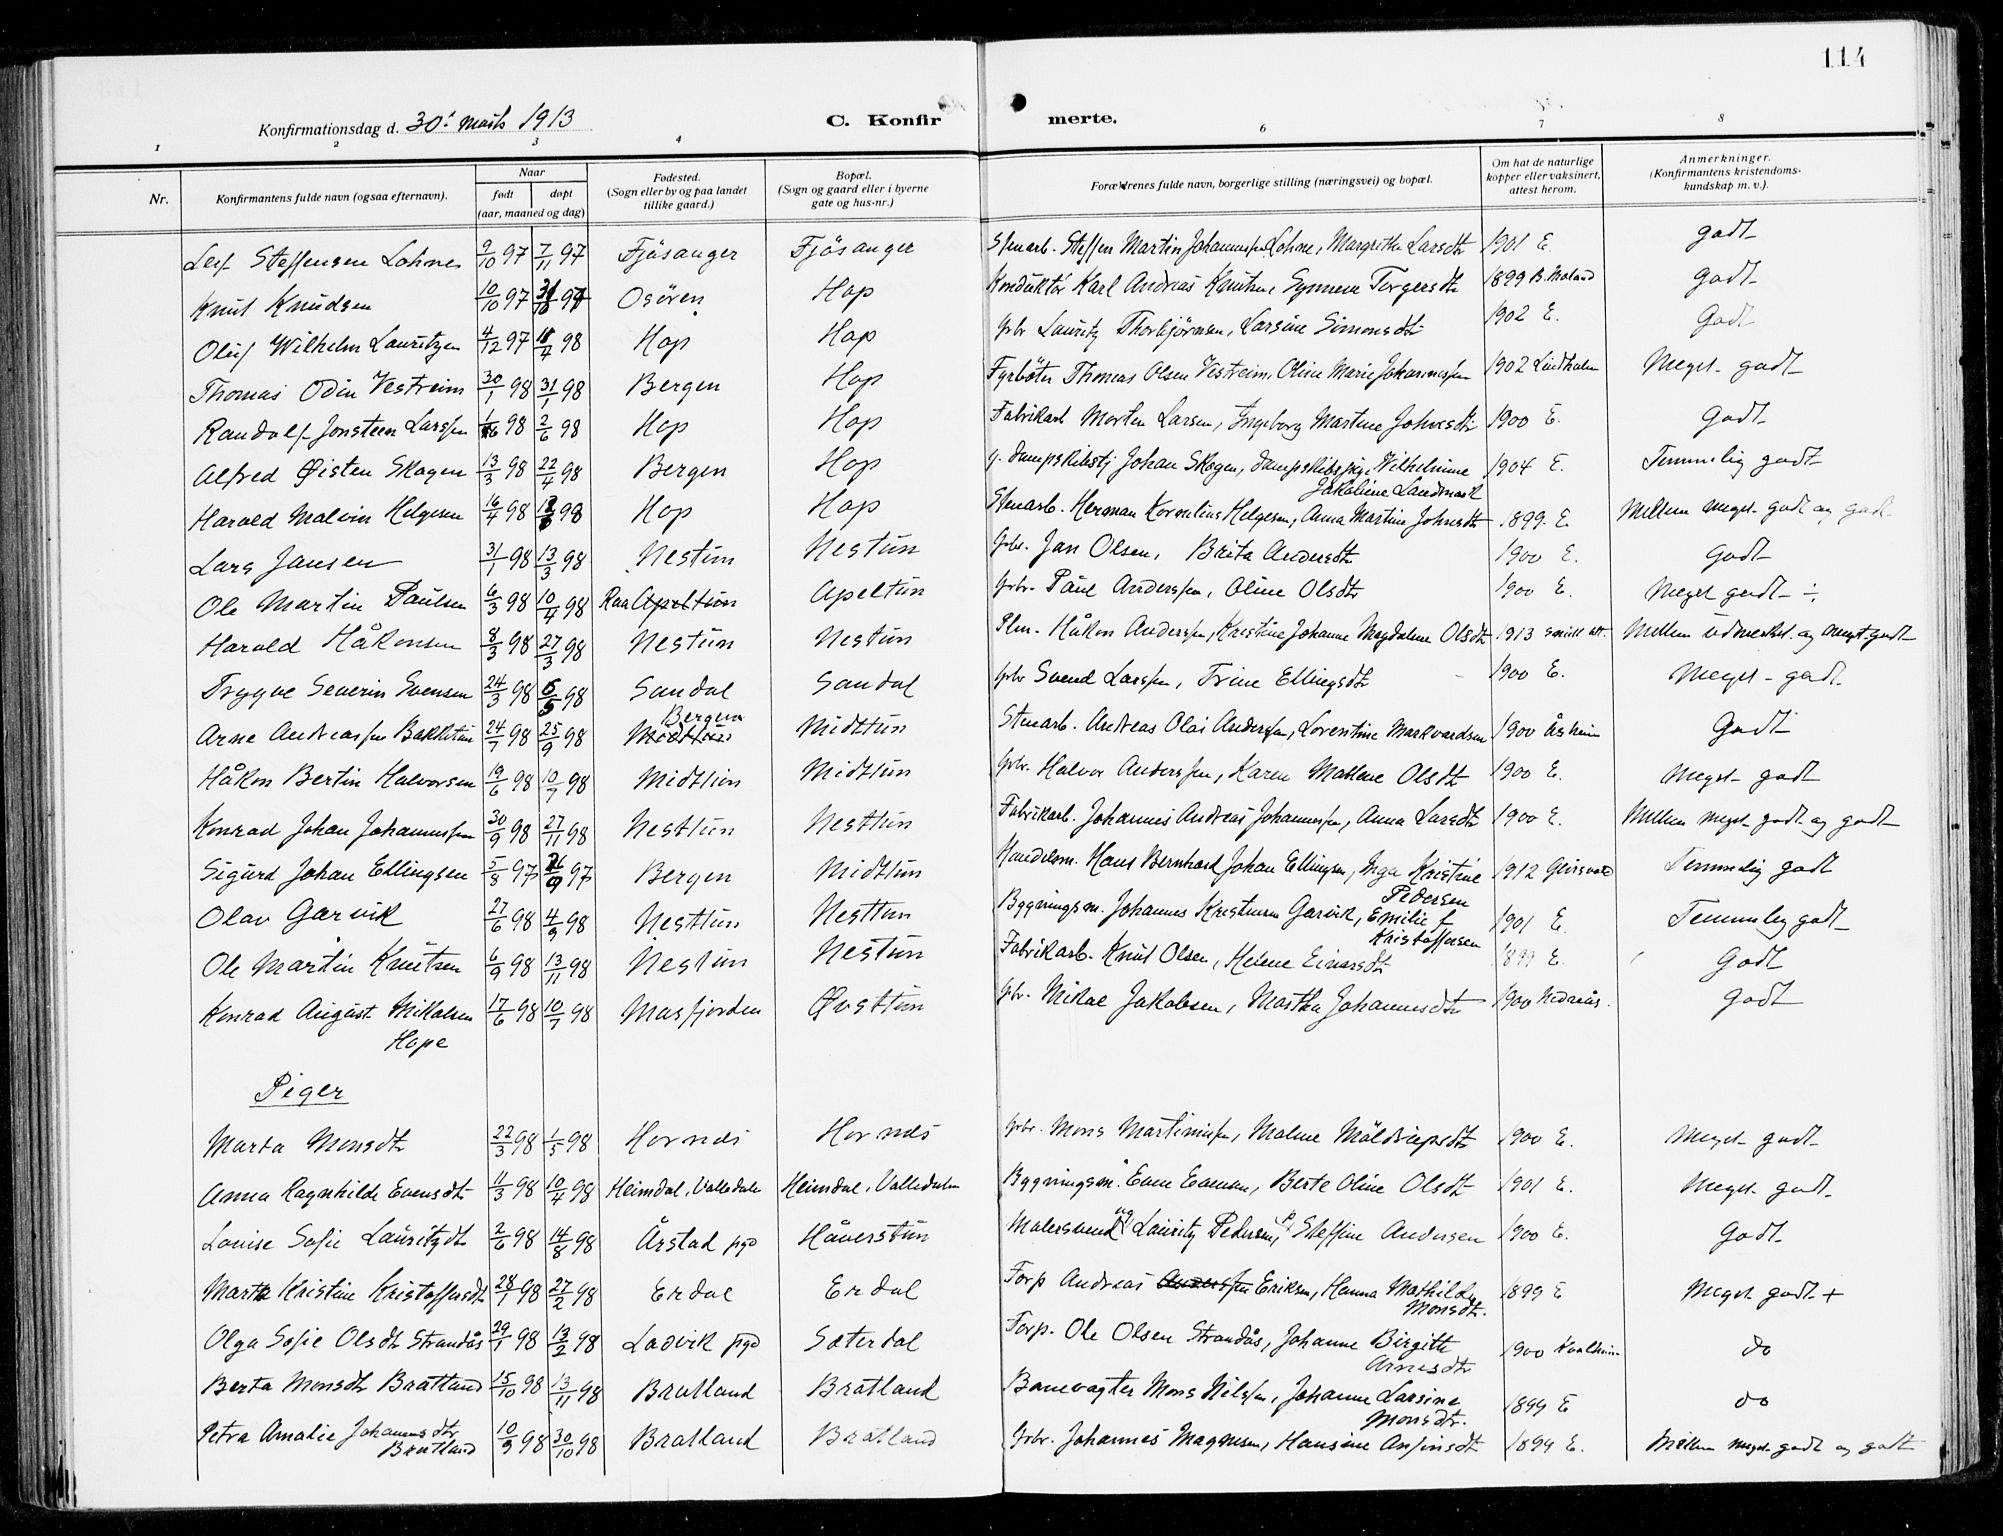 114
Konfirmationsdag d. 30' Marts 1913
C. Konfirmerte.
1 2 3 4 6 7 8
Nr. Konfirmantens fulde navn (ogsaa efternavn). Naar født døpt (aar, maaned og dag) Fødested. (Sogn eller by og paa landet tillike gaard.) Bopæl. (Sogn og gaard eller i byerne gate og hus-nr.) Forældrenes fulde navn, borgerlige stilling (næringsvei) og bopæl. Om hat de naturlige kopper eller vaksinert, attest herom. Anmerkninger. (Konfirmantens kristendomskundskap m. v.).
Leif Steffensen Lohne 9/10 97 7/11 97 Fjösanger Fjösanger Stenarb. Steffen Martin Johannessen Lohne, Margrethe Larsdtr 1901 E. godt
Knut Knudsen 10/10 97 97 Osören Hop Konduktör Karl Andreas Knutsen, Synneve Torgersdtr 1899 B. Moland godt
Oluf Wilhelm Lauritzen 4/12 97 98 Hop Hop Gbr Lauritz Thorbjörnsen, Larsine Simonsdtr 1902 E. Godt
Thomas Odin Vestreim 30/1 98 31/1 98 Bergen Hop Fyrböter Thomas Olsen Vestreim, Oline Marie Johannessen 1902 Lindholm Meget godt
Randolf Jonsteen Larssen 98 2/6 98 Hop Hop Fabrikarb Morten Larsen, Ingeborg Martine Johnsdtr 1900 E. Godt
Alfred Øisten Skogen 13/3 98 22/4 98 Bergen Hop Johan Skogen, Wilhelmine Jakobine Landmark 1904 E. Temmelig godt
Harald Malvin Helgesen 16/4 98 98 Hop Hop Stenarb. Herman Kornelius Helgesen, Anna Martine Johnsdtr 1899. E. Mellem meget godt og godt
Lars Jansen 31/1 98 13/3 98 Nestun Nestun Gbr. Jan Olsen, Brita Andersdtr 1900 E. Godt
Ole Martin Paulsen 6/3 98 10/4 98 Raa Apeltun Apeltun Gbr. Paul Anderssen, Oline Olsdtr 1900 E. Meget godt ÷
Harald Håkonsen 8/3 98 27/3 98 Nestun Nestun Plm. Håkon Anderssen, Kristine Johanne Magdalene Olsdtr 1913 Mellem udmerket og meget godt
Trygve Severin Svensen 24/3 98 98 Sandal Sandal Gbr Svend Larssen, Trine Ellingsdtr 1900 E. Meget godt
Arne Andreassen Bakketun 24/7 98 25/9 98 Midttun Bergen Midttun Stenarb. Andreas Olai Anderssen, Lorentine Markvardsen 1900 Åsheim Godt
Håkon Bertin Halvorsen 19/6 98 10/7 98 Midttun Midttun Gbr. Halvor Anderssen, Karen Malene Olsdtr 1900 E. Meget godt
Konrad Johan Johannessen 30/9 98 27/11 98 Nesttun Nesttun Fabrikarb. Johannes Andreas Johannessen, Anna Larsdtr 1900 E. Mellem meget godt og godt
Sigurd Johan Ellingsen 5/8 97 97 Bergen Midttun Handelsm. Hans Bernhard Johan Ellingsen, Inga Kristine Pedersen 1912 Temmelig godt
Olav Garvik 27/6 98 4/9 98 Nesttun Nesttun Bygningsm. Johannes Kristensen Garvik, Emilie f Kristoffersen 1901 E. Temmelig godt
Ole Martin Knutsen 6/9 98 13/11 98 Nestun Nestun Fabrikarb. Knut Olsen, Helene Einarsdtr 1899 E. Godt
Konrad August Mikalsen Hope 17/6 98 10/7 98 Masfjorden Øvsttun Gbr. Mikal Jakobsen, Martha Johannesdtr 1900 Nedreås. godt
Piger
Marta Monsdtr 22/3 98 1/5 98 Hornes Hornes Gbr. Mons Martinussen, Malene 1900 E. Meget godt
Anna Ragnhilde Evensdtr 11/3 98 10/4 98 Heimdal, Valledalen Heimdal, Valledalen Bygningsm. Even Evensen, Berte Oline Olsdtr 1901 E. Meget godt
Louise Sofie Lauritzdtr 2/6 98 14/8 98 Årstad pgd Håverstun Malersvend ug Lauritz Pedersen, P Steffine Andersen 1900 E. Godt
Marta Kristine Kristoffersdtr 28/1 98 27/2 98 Erdal Erdal Forp Andreas Anderssen Eriksen, Hanna Mathilde Monsdtr. 1899 E Meget godt +
Olga Sofie Olsdtr Strandås 29/1 98 13/2 98 Ladvik pgd Sæterdal Forp. Ole Olsen Strandås, Johanne Birgitte Arnesdtr 1900 Kvalheim do
Berta Monsdtr Bratland 15/10 98 13/11 98 Bratland Bratland Banevagter Mons Nilssen, Johanne Larsine Monsdtr. 1899 E do
Petra Amalie Johannesdtr Bratland 10/9 98 30/10 98 Bratland Bratland Gbr. Johannes Magnesen, Hansine Ansinsdtr 1899 E. Mellem meget godt og godt